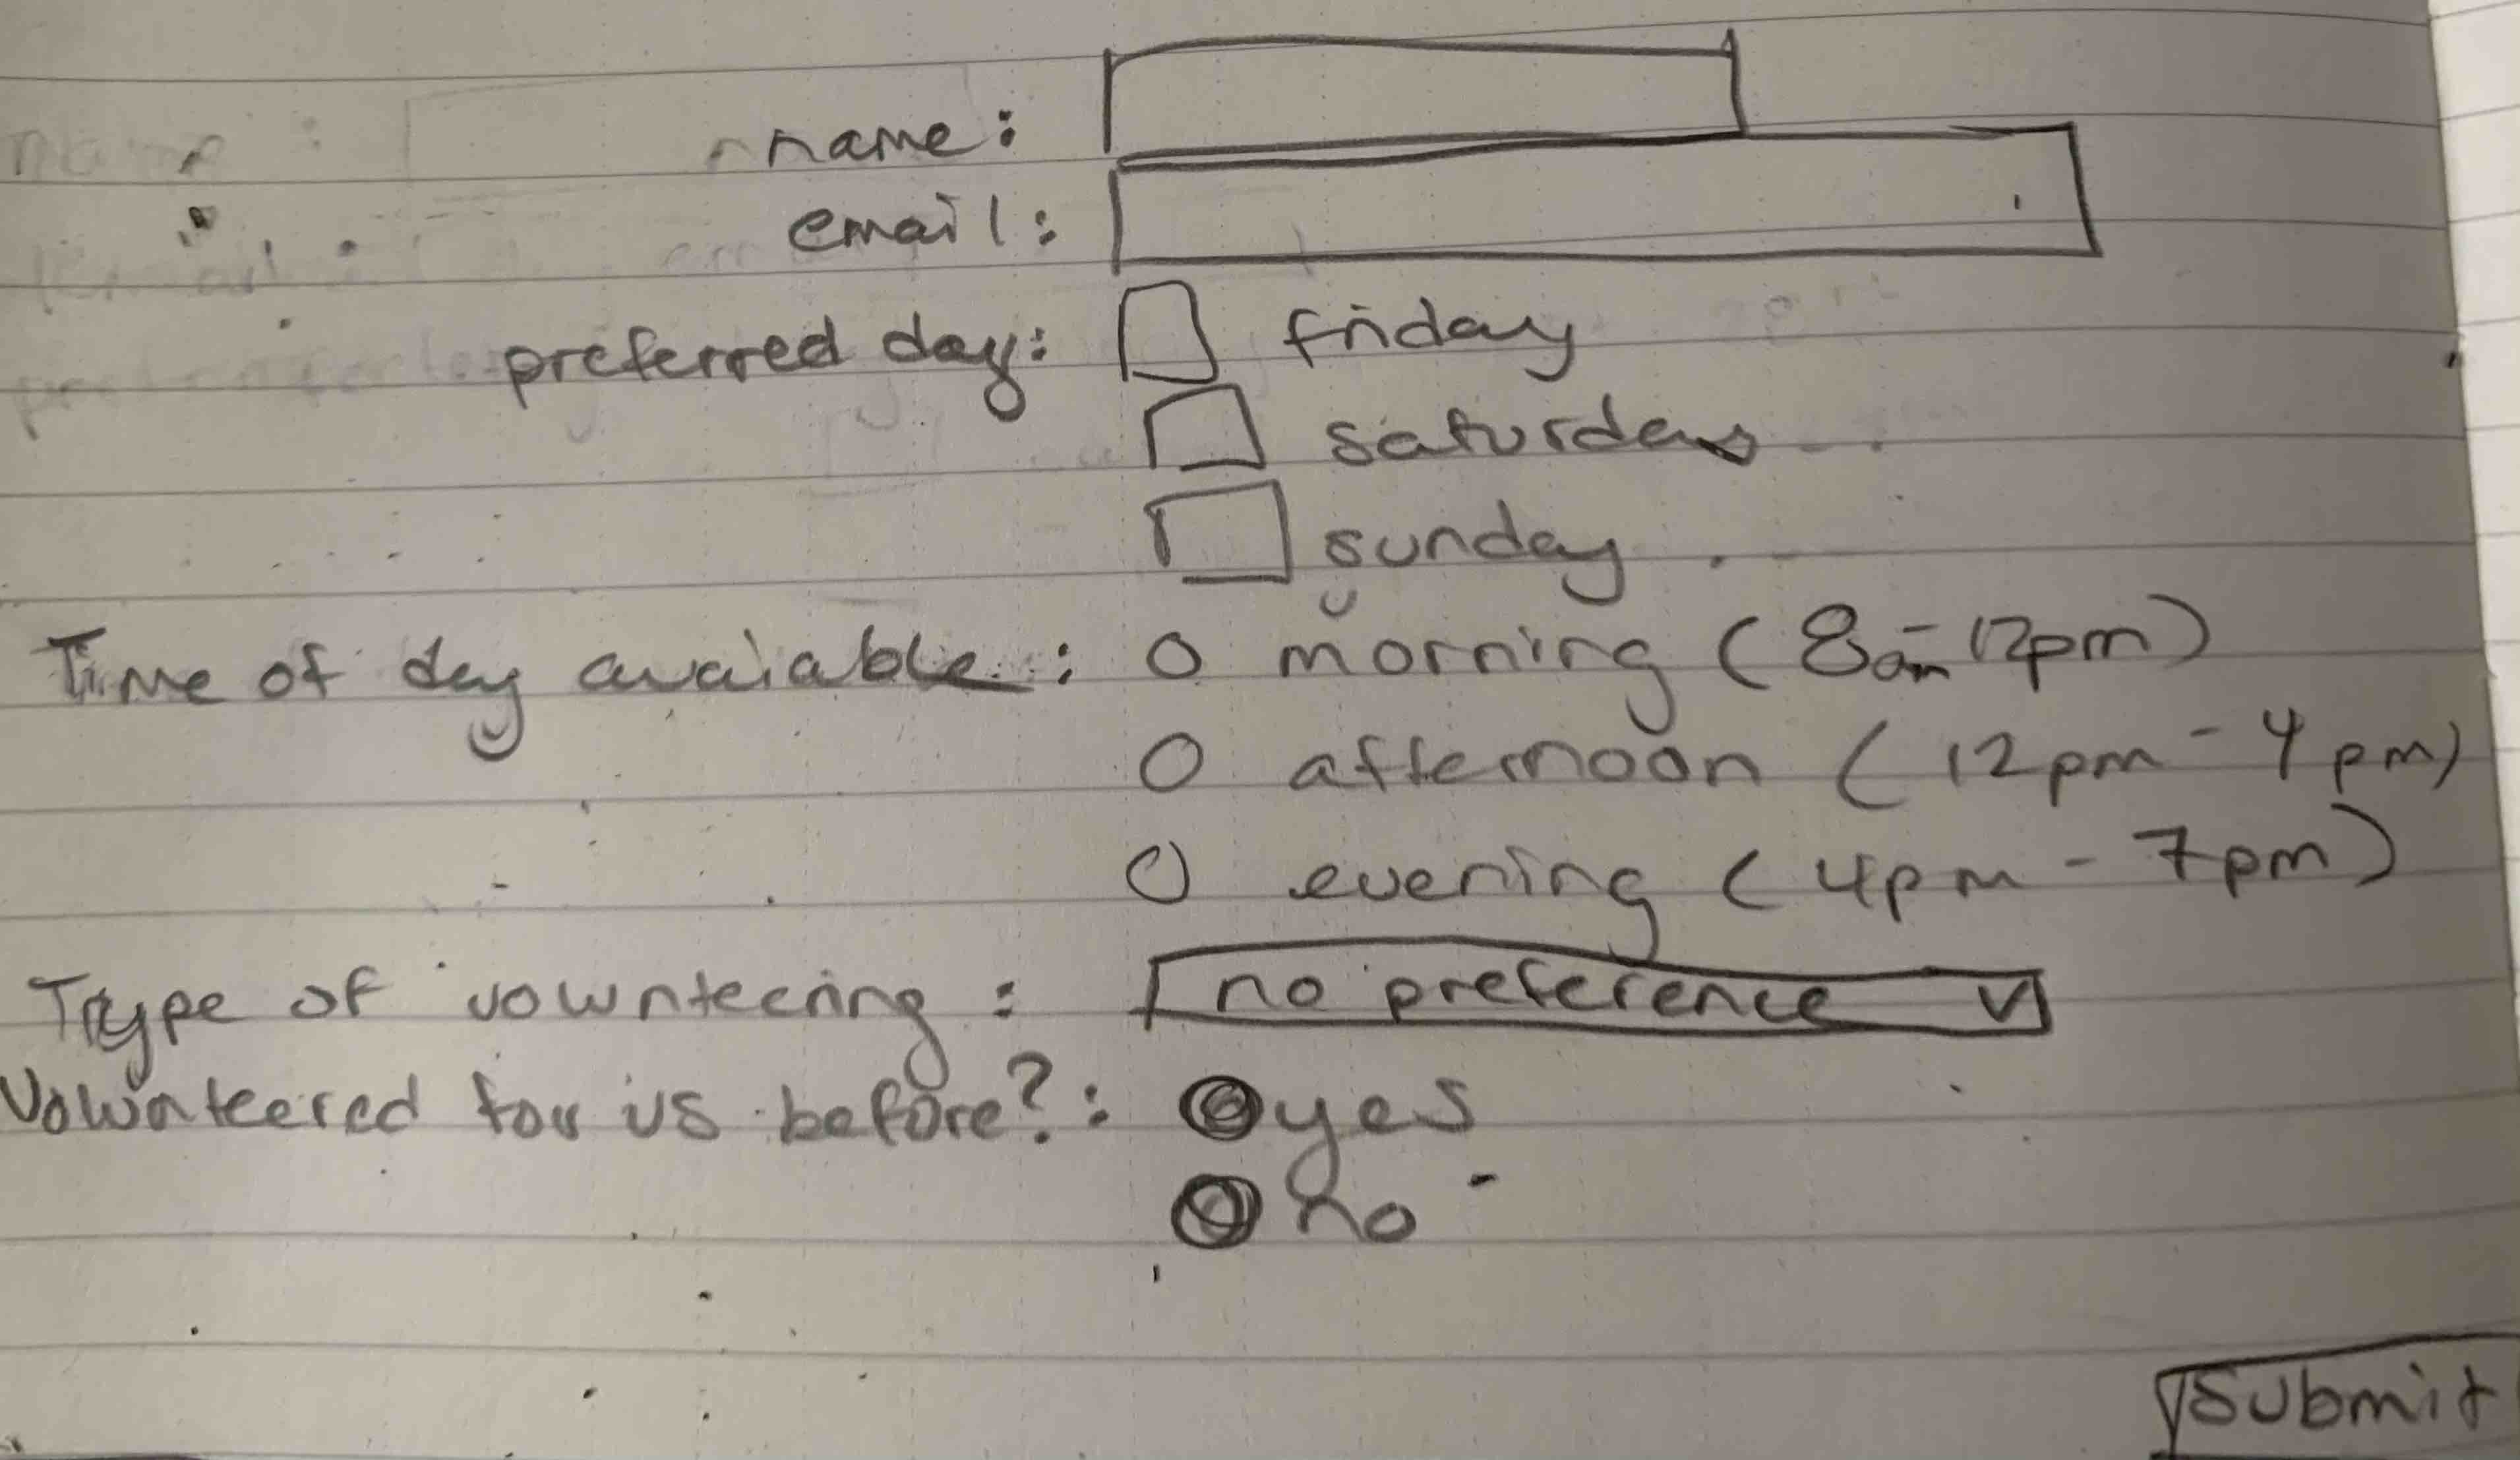 name:
email:
preferred day: friday
saturday
sunday
Time of day avaiable: morning (8am-12pm)
afternoon (12pm - 4pm)
evening (4pm - 7pm)
Type of volunteering: no preference v
Volunteered for us before?: yes
no
submit